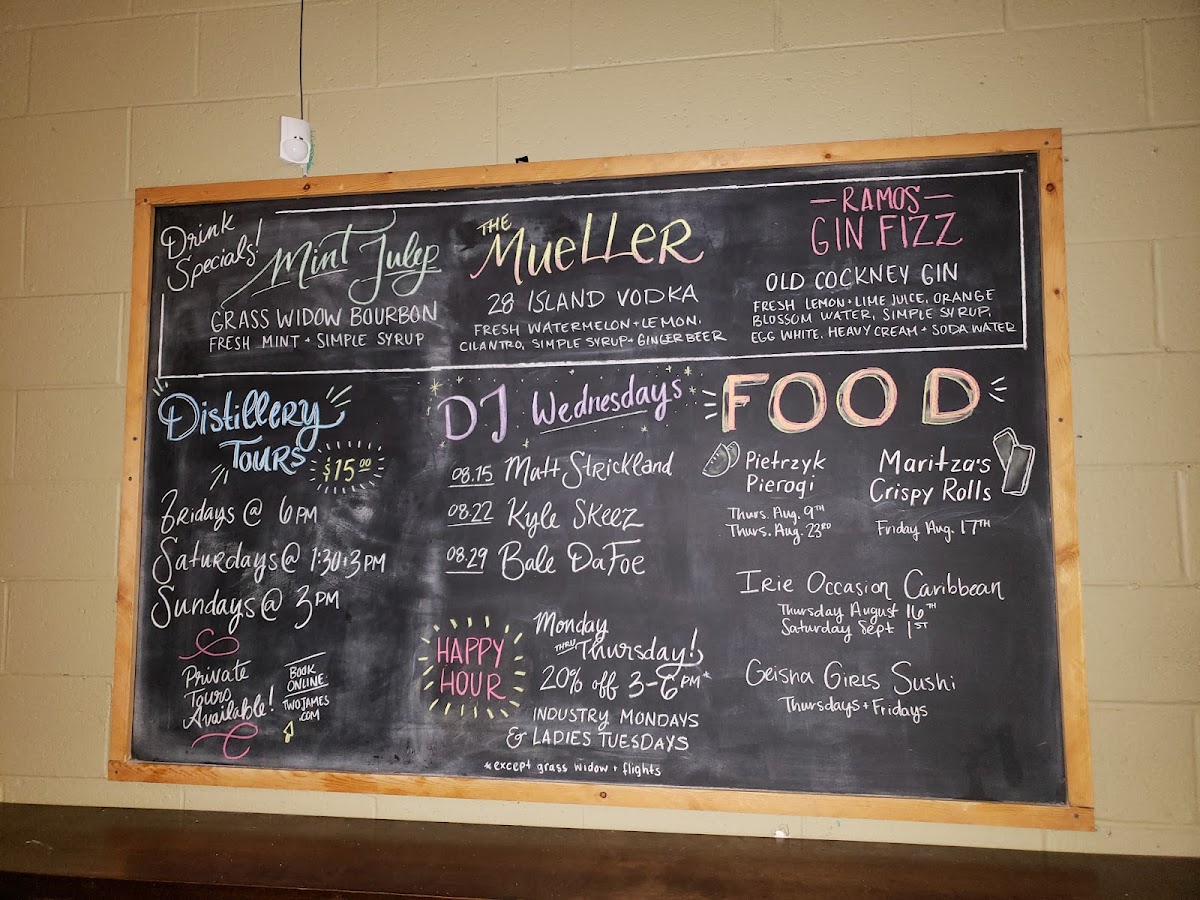 Drink
Specials!
Mint Julep
GRASS WIDOW BOURBON
FRESH MINT + SIMPLE SYRUP
THE
MUELLER
28 ISLAND VODKA
FRESH WATERMELON + LEMON,
CILANTRO, SIMPLE SYRUP + GINGER BEER
— RAMOS —
GIN FIZZ
OLD COCKNEY GIN
FRESH LEMON + LIME JUICE, ORANGE
BLOSSOM WATER, SIMPLE SYRUP,
EGG WHITE, HEAVY CREAM + SODA WATER
DISTILLERY
TOURS
$15.00
FRIDAYS @ 6PM
SATURDAYS @ 1:30+3PM
SUNDAYS @ 3PM
Private
Tours
Available!
BOOK
ONLINE:
TWOJAMES
.COM
DJ Wednesdays
08.15 Matt Strickland
08.22 Kyle Skeez
08.29 Bale DaFoe
HAPPY
HOUR
Monday
THRU Thursday!
20% off 3-6PM*
INDUSTRY MONDAYS
& LADIES TUESDAYS
*except grass widow + flights
FOOD
Pietrzyk
Pierogi
Thurs. Aug. 9TH
Thurs. Aug. 23RD
Maritza's
Crispy Rolls
Friday Aug. 17TH
Irie Occasion Caribbean
Thursday August 16TH
Saturday Sept 1ST
Geisha Girls Sushi
Thursdays + Fridays